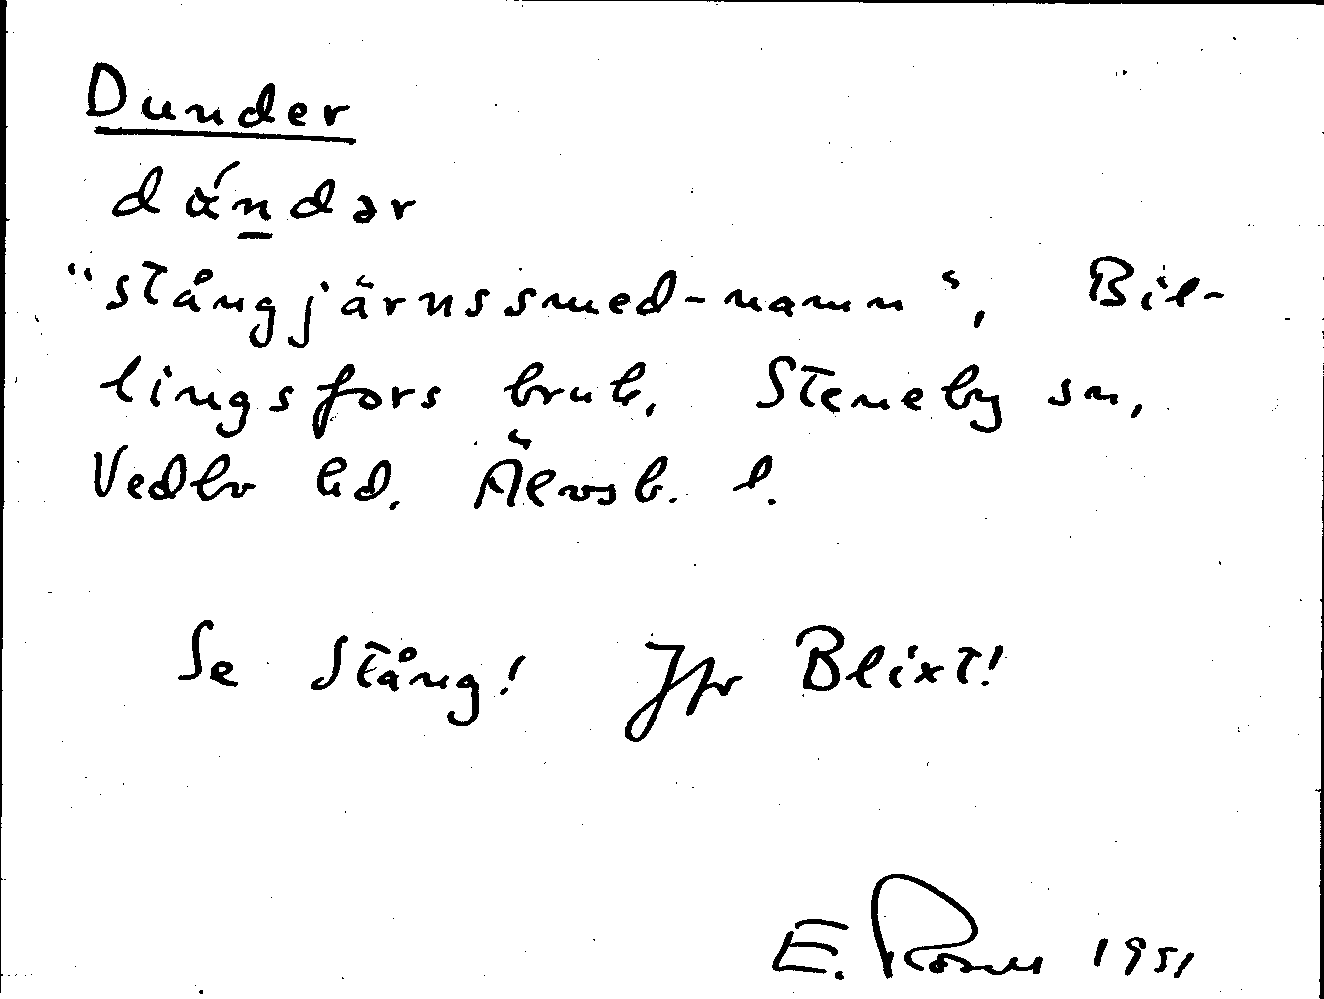 Dunder
dándər
"stångjärnssmed-namn", Bil-
lingsfors bruk, Steneby sn,
Vedbo hd. Älvsb. l.
Se Stång! Jfr Blixt!
E. 1951